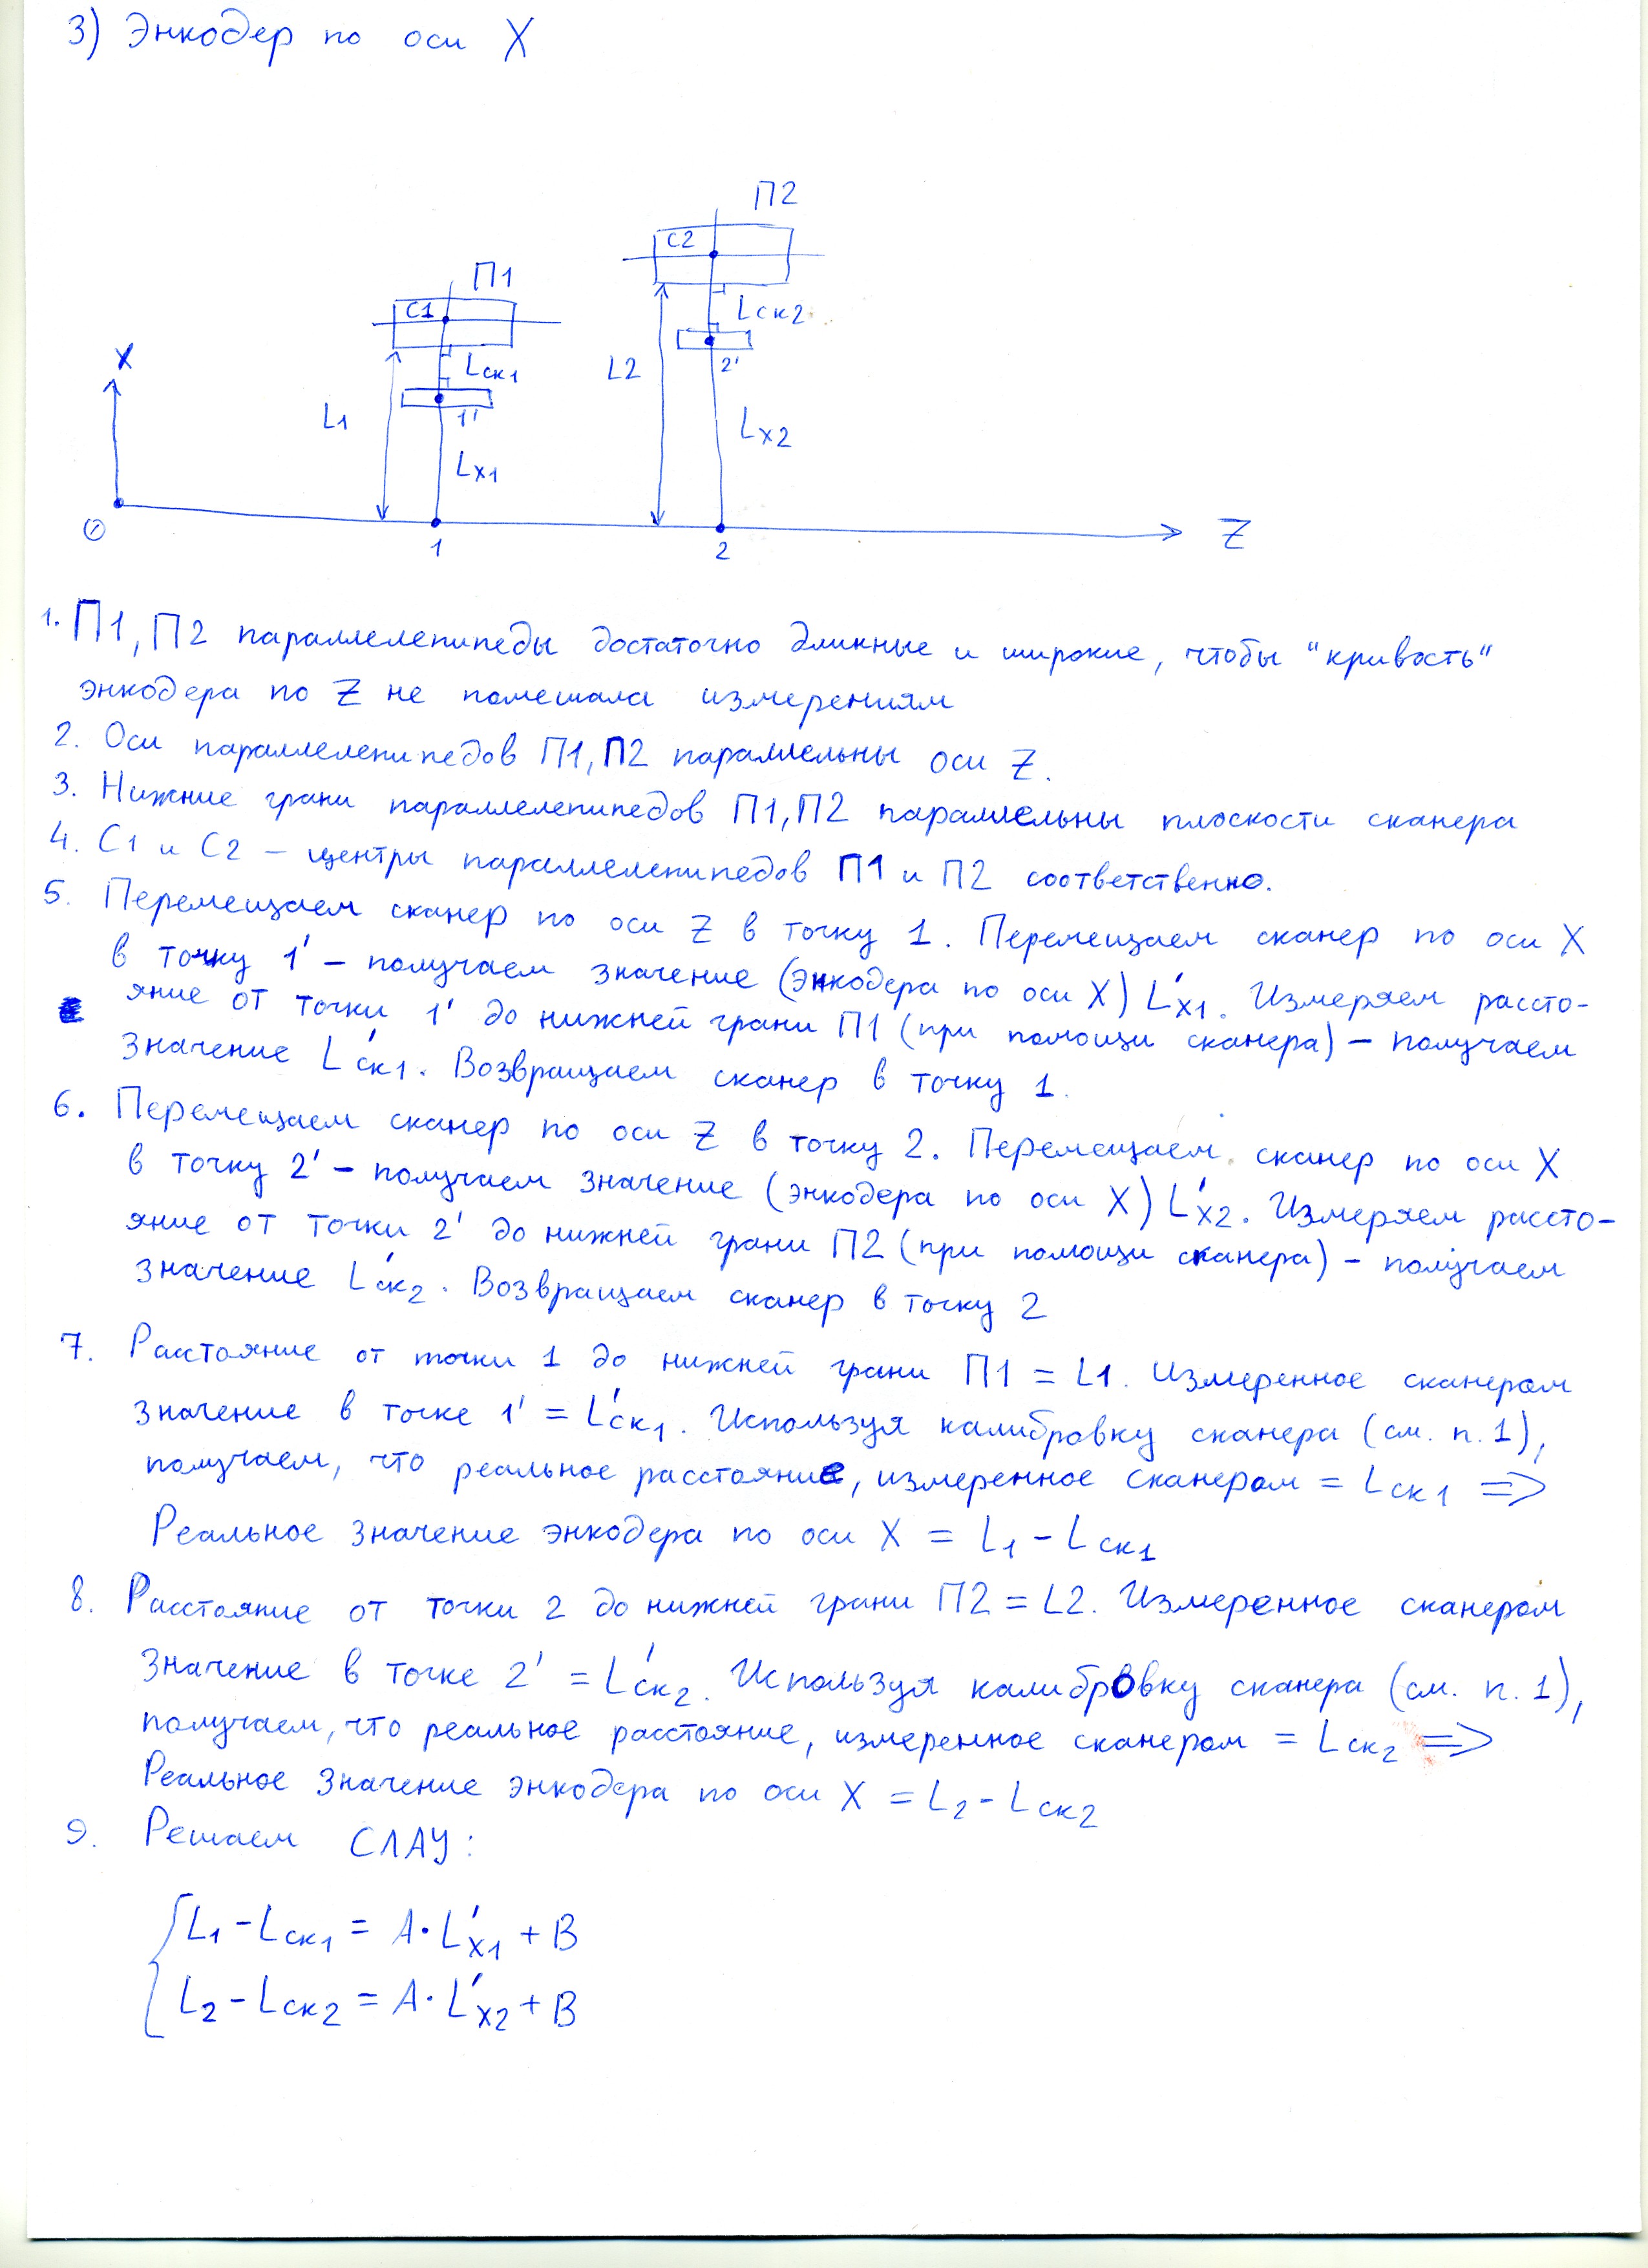 3) Энкодер по оси X
П2
C2
П1
C1
Lск2
X
L2
2'
Lск1
L1
1'
Lx2
Lx1
0
Z
1
2
1. П1, П2 параллелепипеды достаточно длинные и широкие, чтобы "кривость"
энкодера по Z не помешала измерениям
2. Оси параллелепипедов П1, П2 параллельны оси Z.
3. Нижние грани параллелепипедов П1, П2 параллельны плоскости сканера
4. C1 и C2 – центры параллелепипедов П1 и П2 соответственно.
5. Перемещаем сканер по оси Z в точку 1. Перемещаем сканер по оси X
в точку 1' – получаем значение (энкодера по оси X) L'x1. Измеряем рассто-
яние от точки 1' до нижней грани П1 (при помощи сканера) – получаем
значение L'ск1. Возвращаем сканер в точку 1.
6. Перемещаем сканер по оси Z в точку 2. Перемещаем сканер по оси X
в точку 2' – получаем значение (энкодера по оси X) L'x2. Измеряем рассто-
яние от точки 2' до нижней грани П2 (при помощи сканера) – получаем
значение L'ск2. Возвращаем сканер в точку 2
7. Расстояние от точки 1 до нижней грани П1 = L1. Измеренное сканером
значение в точке 1' = L'ск1. Используя калибровку сканера (см. п. 1),
получаем, что реальное расстояние, измеренное сканером = Lск1 =>
Реальное значение энкодера по оси X = L1 - Lск1
8. Расстояние от точки 2 до нижней грани П2 = L2. Измеренное сканером
значение в точке 2' = L'ск2. Используя калибровку сканера (см. п. 1),
получаем, что реальное расстояние, измеренное сканером = Lск2 =>
Реальное значение энкодера по оси X = L2 - Lск2
9. Решаем СЛАУ:
L1 - Lск1 = A · L'x1 + B
L2 - Lск2 = A · L'x2 + B